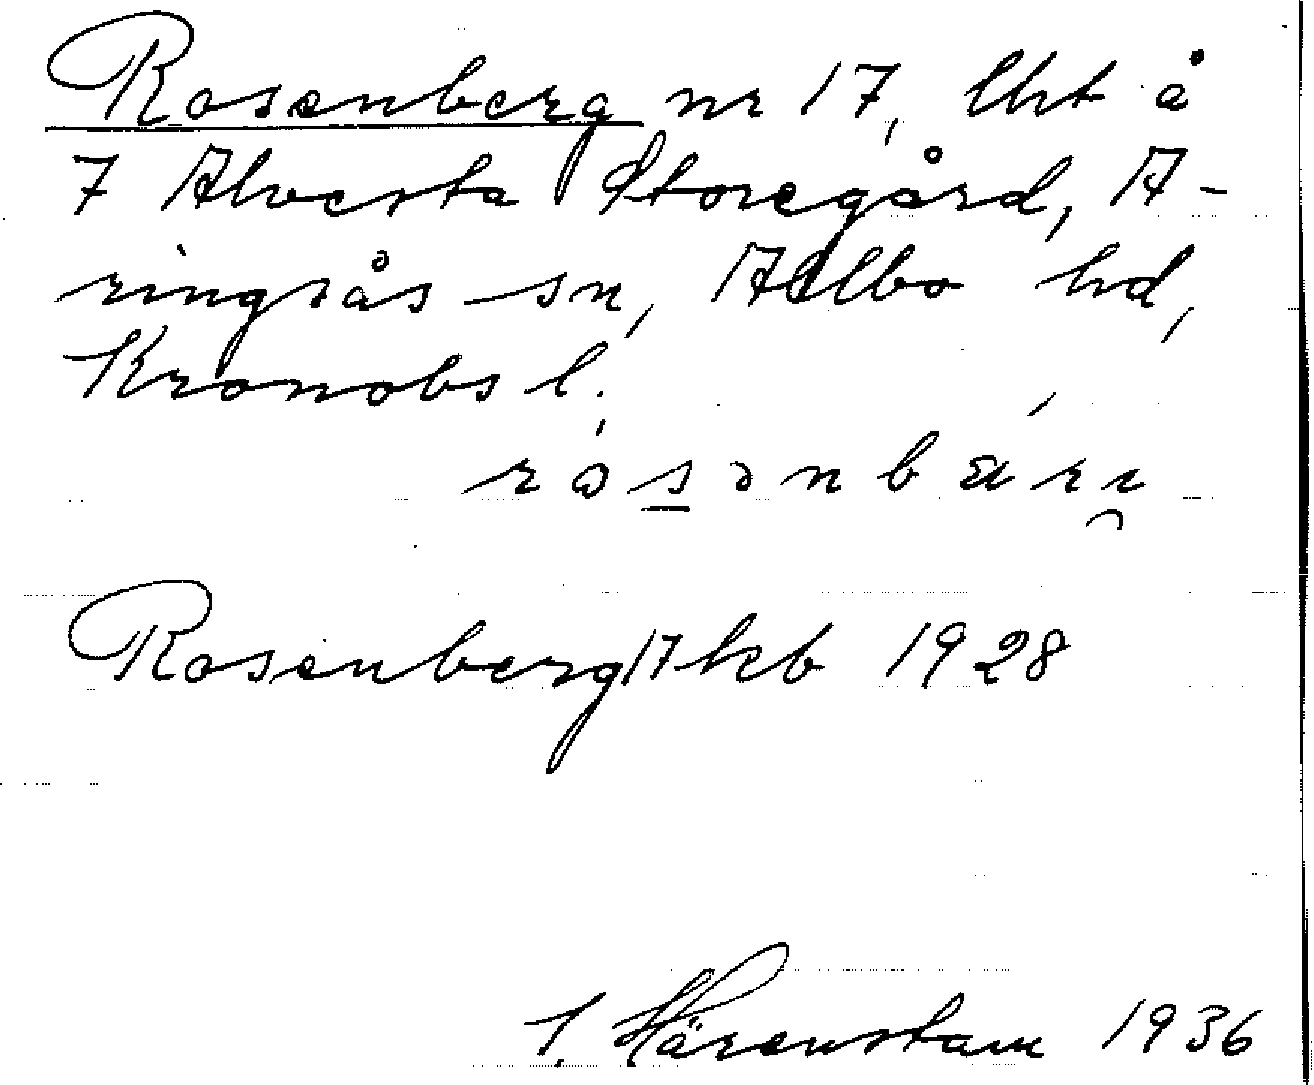 Rosenberg nr 17, lht å
7 Alvesta Storegård, A-
ringsås sn, Allbo hd,
Kronobs l.
Rosenberg 17 kb 1928
Härenstam 1936